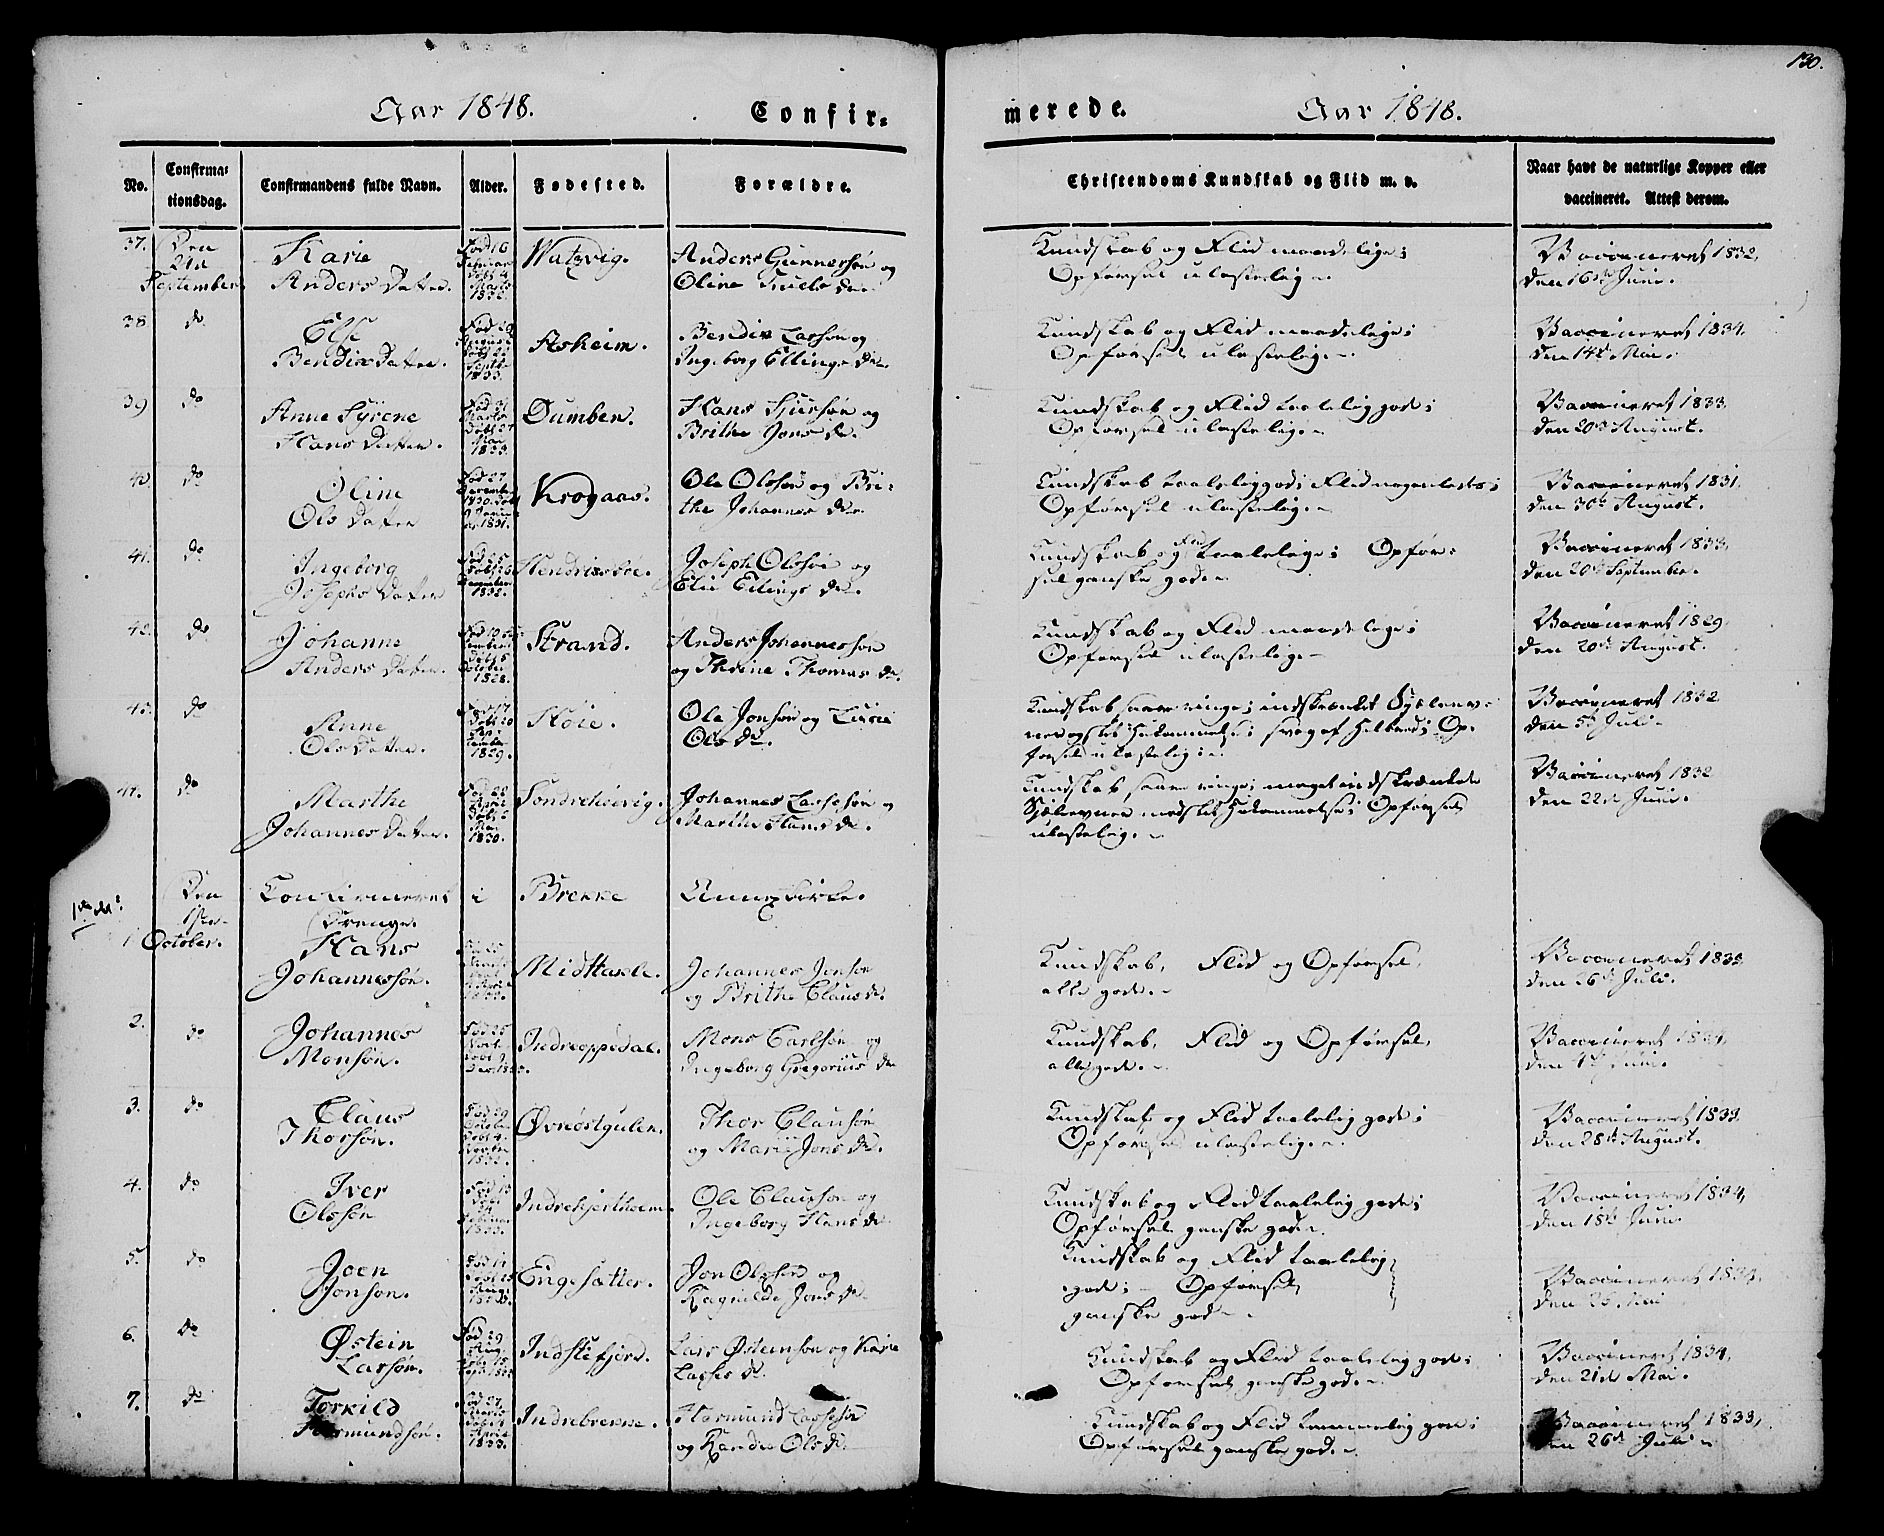 130.
Aar 1848. Confir- merede. Aar 1848.
No. Confirma- tionsdag. Confirmandens fulde Navn. Alder. Fødested. Forældre. Christendoms Kundskab og Flid m. v. Naar havt de naturlige Kopper eller vaccineret. Attest derom.
37. Den 24de September
Karie
Anders Datter.
Fød 16 Februar Døbt 4 Marts 1832.
Watzvig.
Anders Gunnersøn og
Oline Truels dr.
Kundskab og Flid maadelige;
Opførsel ulastelig.
Vaccineret 1832,
den 16de Juni.
38 do
Else
Bendix Datter.
Aaheim.
Bendix Larssøn og
Ingeborg Ellings dr.
Kundskab og Flid maadelige;
Opførsel ulastelig.
Vaccineret 1834.
den 14de Mai.
39 do
Anne Syrene
Hans Datter.
Dumben.
Hans Siursøn og
Brithe Jons dr.
Kundskab og Flid taaleliggode;
Opførsel ulastelig.
Vaccineret 1833,
den 20de August.
40. do
Oline
Ols Datter
Fød 27 December 1830.
Krogaas.
Ole Olssøn og Bri-
the Johannes dr.
Kundskab taaleliggod; Flid nogenledes;
Opførsel ulastelig.
Vaccineret 1831.
den 30te August.
41. do
Ingeborg
Josephs Datter
December 1832.
Hendrixbøe.
Joseph Olssøn og
Elie Ellings dr.
Kundskab og Flid taalelige; Opfør-
sel ganske god.
Vaccineret 1833,
den 20de September.
42. do
Johanne
Anders Datter.
October 1828.
Strand.
Anders Johannessøn
og Therine Thomas dr.
Kundskab og Flid maadelige;
Opførsel ulastelig.
Vaccineret 1829,
den 20de August.
43. do
Anne
Ols Datter.
Fød 17 Døbt 20 September 1829.
Støie.
Ole Jonsøn og
Ols dr.
Kundskab saare ringe; indskrænket Sjælevn-
Hukommelse; svag af Helbred; Op-
førsel ulastelig.
Vaccineret 1832
den 5te Juli.
44. do
Marthe
Johannes Datter.
1830.
Søndrehøevig.
Johannes Lassesøn og
Marthe Hans dr.
Kundskab saare ringe; meget indskrænkede
Sjælevner med slet Hukommelse; Opførsel
ulastelig.
Vaccineret 1832
den 22de Juni.
Den 1ste October.
Confirmeret i Brekke Annexkirke.
Drenge.
1
Hans
Johannessøn.
Midttasle.
Johannes Jensøn
og Brithe Claus dr.
Kundskab, Flid og Opførsel,
alle gode.
Vaccineret 1833
den 26de Juli.
2. do
Johannes
Monsøn.
Indreoppedal.
Mons Carlsøn og
Ingeborg Gregorius dr
Kundskab, Flid og Opførsel,
alle gode.
Vaccineret 1834,
den 4de Juni.
3. do
Claus
Thorsøn.
1832.
Øvreøstgulen.
Thor Clausøn
og Marie Jons dr.
Kundskab og Flid taalelig gode;
Opførsel ulastelig.
Vaccineret 1833
den 28de August.
4. do
Iver
Olssøn
Indrehjertholm.
Ole Clausson og
Ingeborg Hans dr
Kundskab og Flid taalelig gode;
Opførsel ganske god.
Vaccineret 1834,
den 18de Juni
5. do
Joen
Jonsøn.
Engesætter.
Jon Olssøn og
Ragnilde Jons dr
Kundskab og Flid taalelig
gode; - Opførsel
ganske god.
Vaccineret 1834,
den 26. Mai
6. do
Østein
Larssøn.
Indstefjord.
Lars Østeinsøn og Karie
Lasses dr.
Kundskab og Flid taalelig gode;
Opførsel ganske god.
Vaccineret 1834,
den 21de Mai.
7. do
Torkild
Hermundsøn.
Fød 27 Marts 1833.
Indrebrekke.
Hermund Lassesøn
og Randie Ols dr.
Kundskab og Flid temmelig gode;
Opførsel ganske god.
Vaccineret 1833,
den 26de Juli